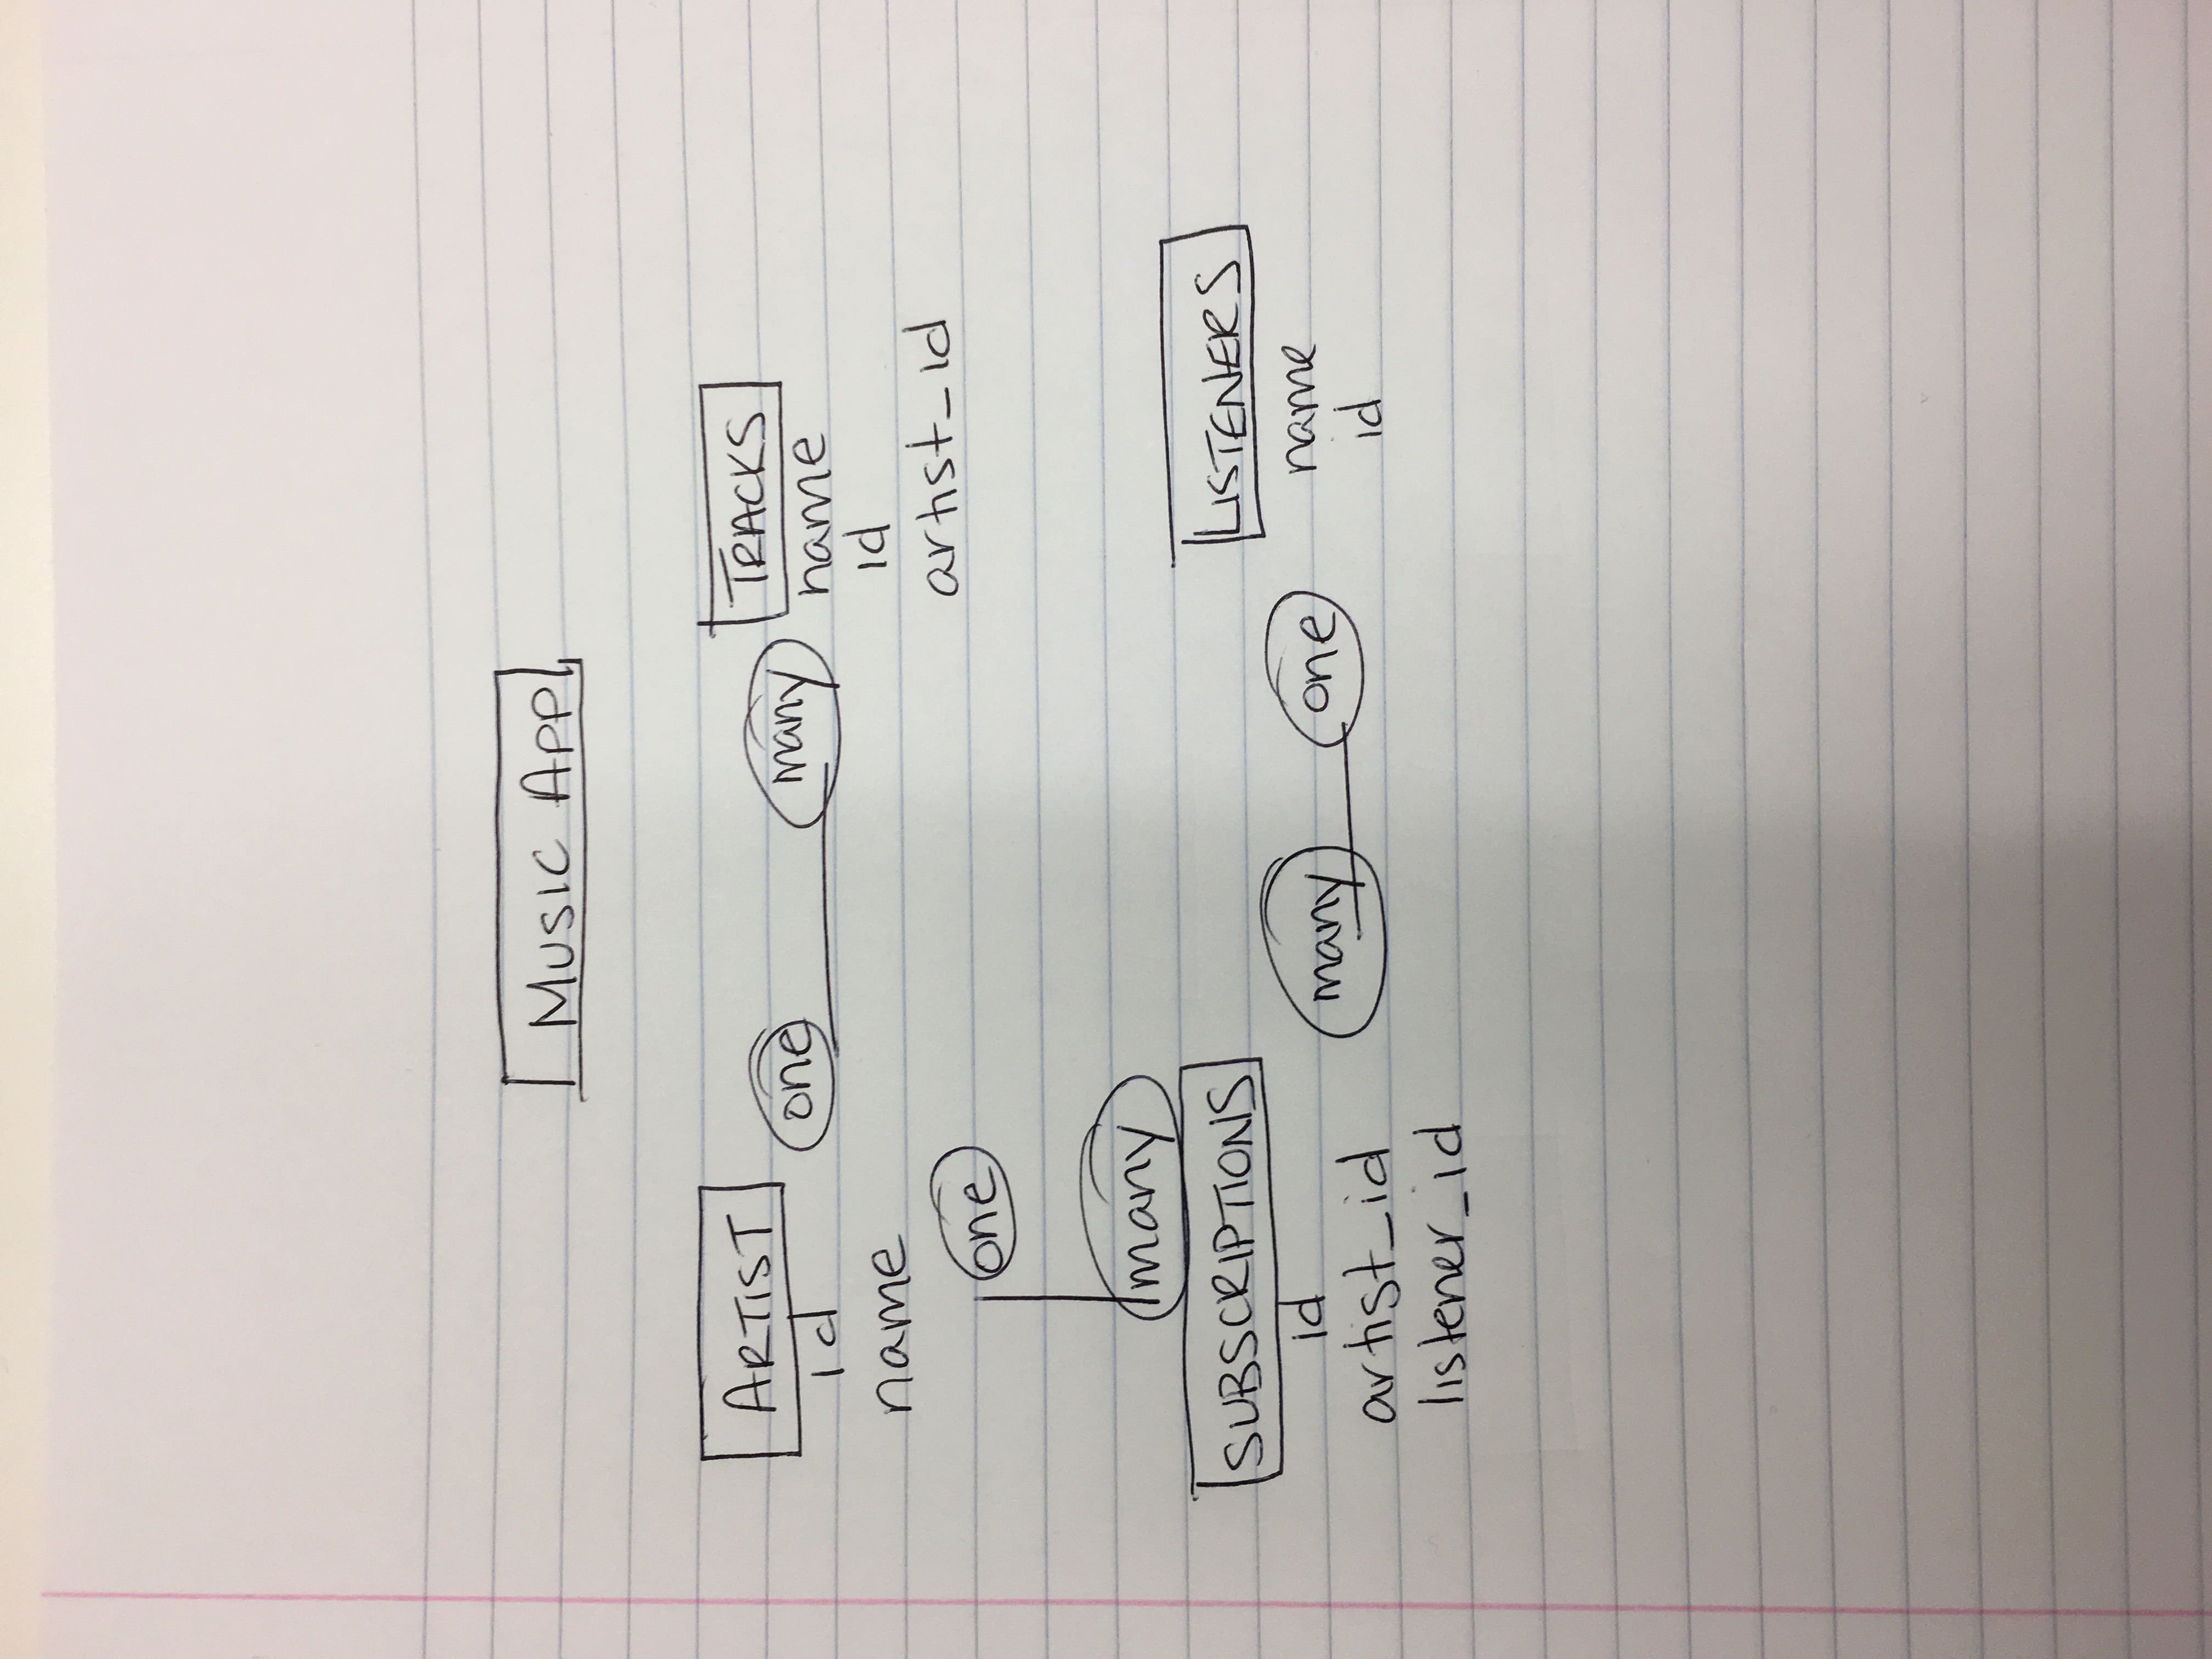 MUSIC APP
ARTIST
id
name
one
many
TRACKS
name
id
artist_id
one
many
SUBSCRIPTIONS
id
artist_id
listener_id
many
one
LISTENERS
name
id